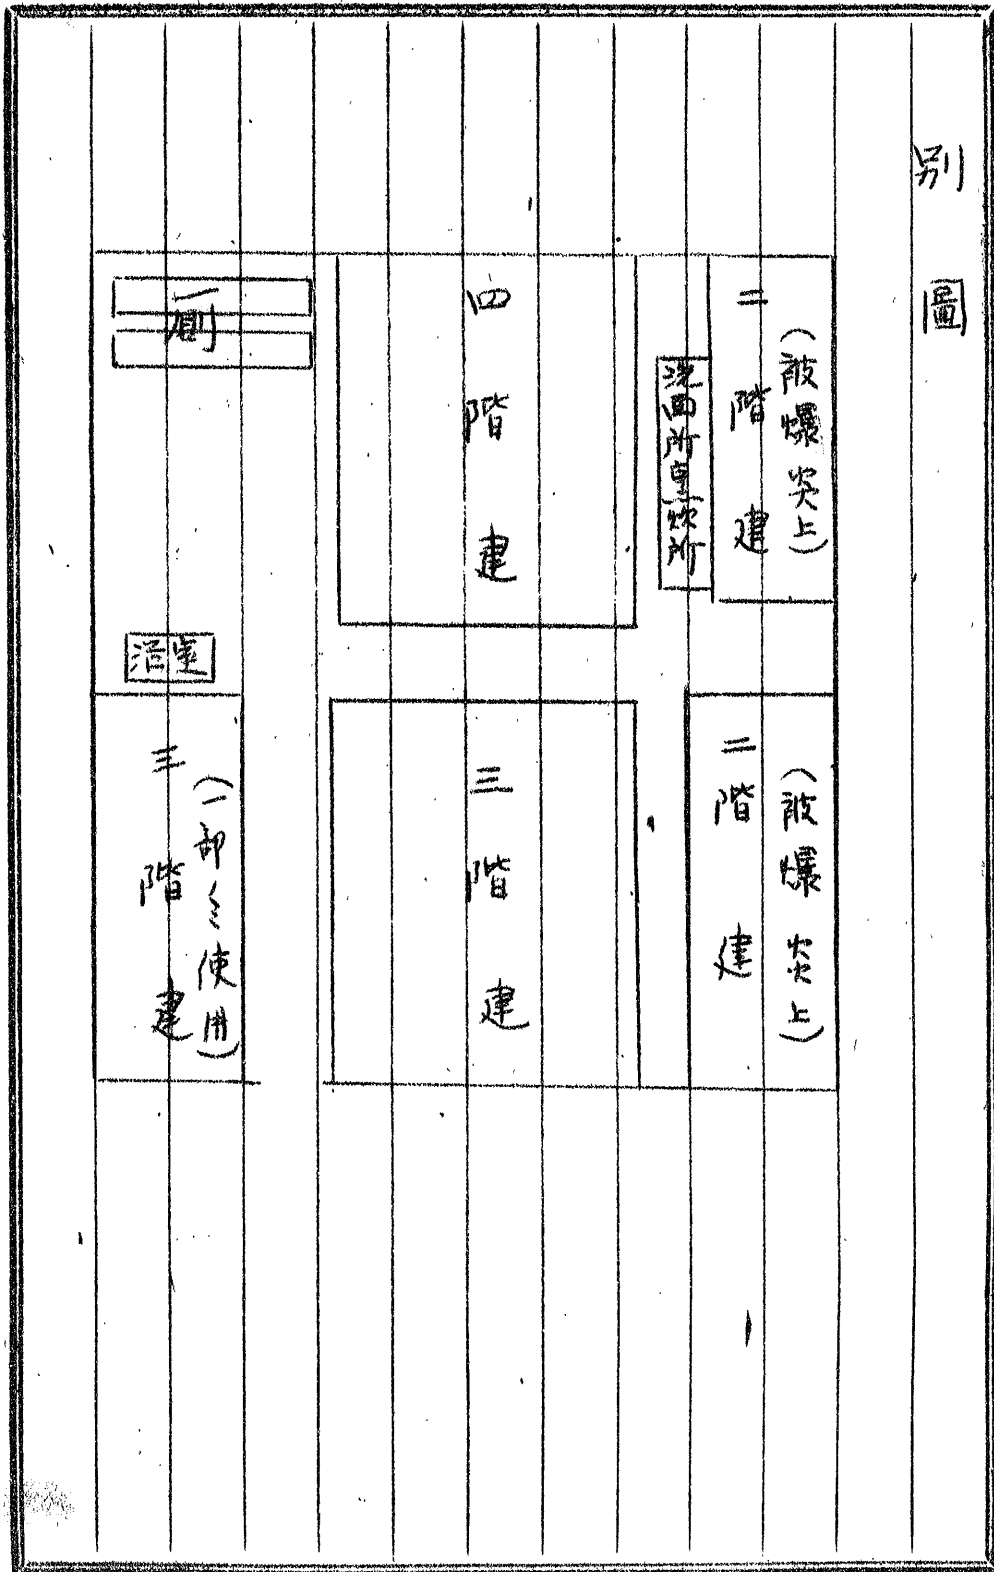 別圖
（被爆炎上）
二階建
洗面所烹炊所
四階建
厠
（被爆炎上）
二階建
三階建
浴室
（一部分使用）
三階建